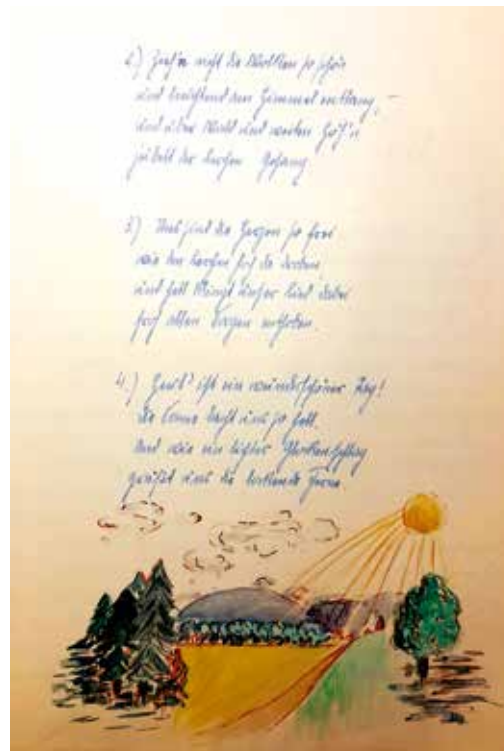 2.) Zieh'n nicht die Wolken so schön
und leuchtend am Himmel entlang, –
und über Wald und weiten Höh'n
jubelt der Lerchen Gesang.
3.) Uns sind die Herzen so frei
wie den Lerchen hoch da droben
und hell klingt unser Lied dabei
hoch allen Sorgen enthoben.
4.) Heut' ist ein wunderschöner Tag!
die Sonne lacht uns so hell.
Und wie ein lichter Glockenschlag
grüßt uns die lockende Ferne.